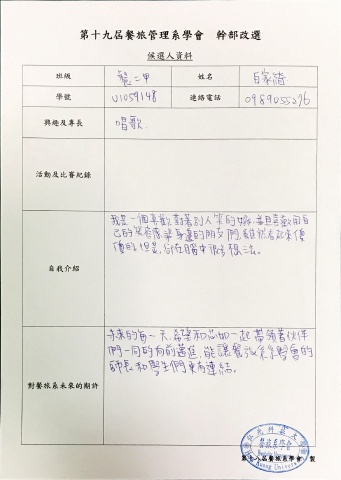 第十九屆餐旅管理系學會 幹部改選
候選人資料
班級 餐二甲 姓名
學號 U1059148 連絡電話 0989055276
興趣及專長 唱歌
活動及比賽紀錄
自我介紹
我是一個喜歡對著別人笑的 並且喜歡用自
己的笑容感染身邊的朋友們,雖然看起來傻
傻的,但是 在腦中很有想法。
對餐旅系未來的期許
未來的每一天,希望和 一起帶領著伙伴
們一同的向前邁進,能讓餐旅系系學會的
師長和學生們更有連結。
餐旅系學會
第十八屆餐旅系學會 製